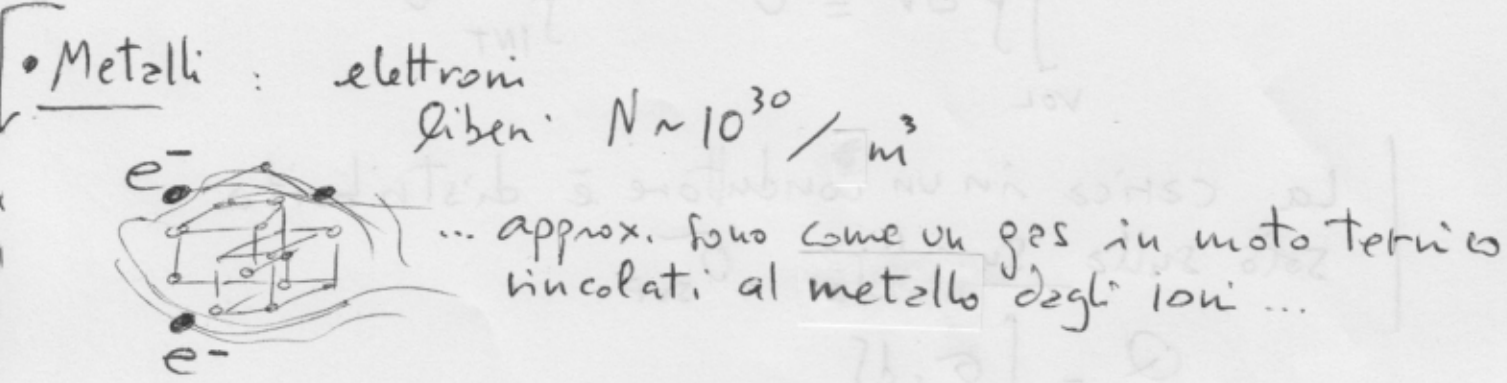 • Metalli : elettroni
liberi N ~ 10^30 / m^3
e-
... approx. sono come un gas in moto termico
vincolati al metallo dagli ioni ...
e-